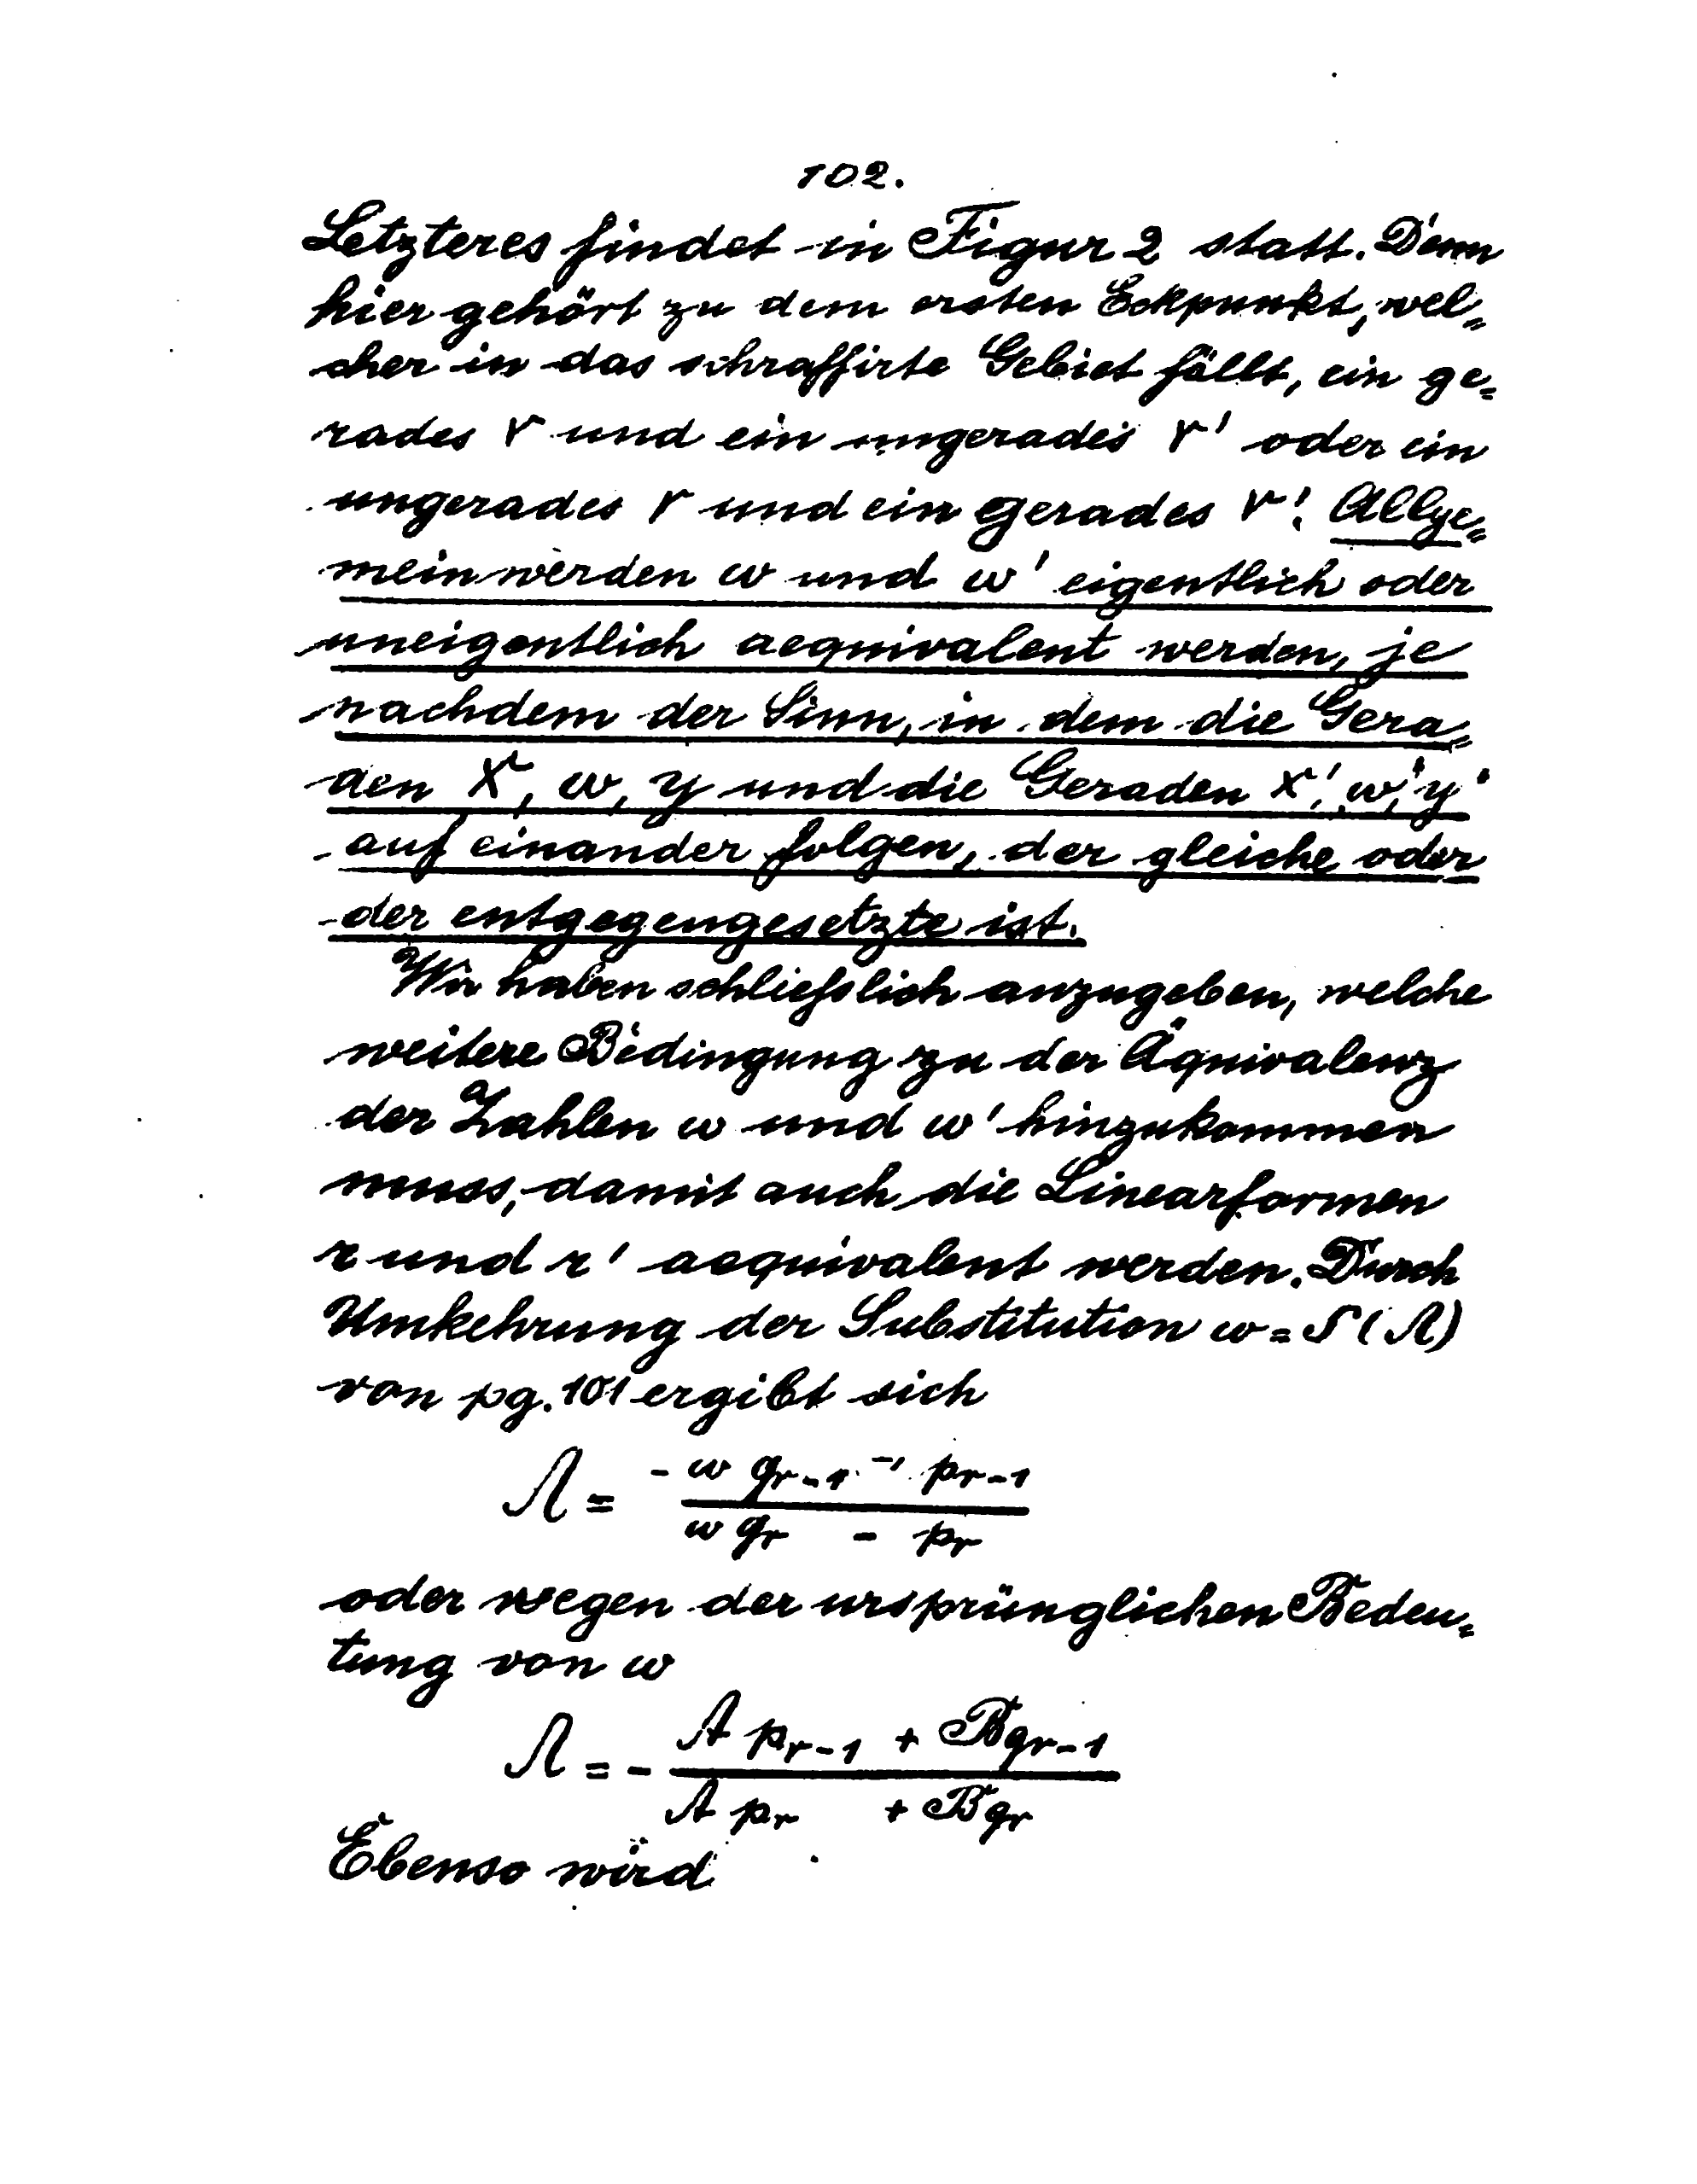 102.
Letzteres findet in Figur 2 statt. Denn
hier gehört zu dem ersten Eckpunkt, wel=
cher in das schraffirte Gebiet fällt, ein ge=
rades r und ein ungerades r' oder ein
ungerades r und ein gerades r'. Allge=
mein werden ω und ω' eigentlich oder
uneigentlich aequivalent werden, je
nachdem der Sinn, in dem die Gera=
den X, ω, y und die Geraden X', ω', y'
auf einander folgen, der gleiche oder
der entgegengesetzte ist.
Wir haben schliesslich anzugeben, welche
weitere Bedingung zu der Äquivalenz
der Zahlen ω und ω' hinzukommen
muss, damit auch die Linearformen
r und r' aequivalent werden. Durch
Umkehrung der Substitution ω = S(Λ)
von pg. 101 ergibt sich
Λ = - (ω q_{r-1} - p_{r-1}) / (ω q_r - p_r)
oder wegen der ursprünglichen Bedeu=
tung von ω
Λ = - (A p_{r-1} + B q_{r-1}) / (A p_r + B q_r)
Ebenso wird